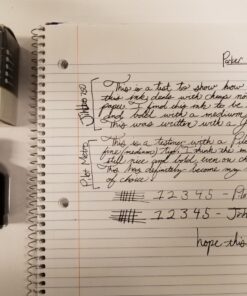 Parker
Jinhao 250
This is a test to show how
this ink deals with cheap no
paper. I find this ink to be
and bold with a medium
This was written with a
Pilot Metro
This is a testiner with a
fine (medium) tip. I think the
still nice and bold even on ch
This has definitely become my
of choice.
1 2 3 4 5 - Pilo
1 2 3 4 5 - Jinh
hope this